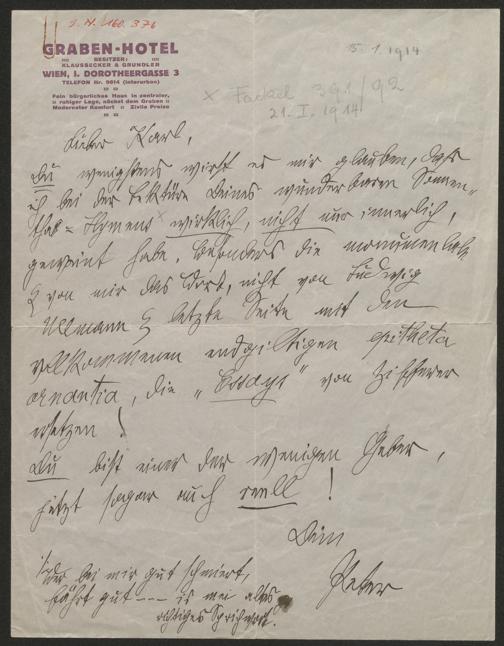 I. N. 160.376
GRABEN-HOTEL
BESITZER:
KLAUSSECKER & GRUNDLER
WIEN, I. DOROTHEERGASSE 3
TELEFON Nr. 9614 (interurban)
Fein bürgerliches Haus in zentraler,
ruhiger Lage, nächst dem Graben
Moderner Komfort Zivile Preise
1 1914
x Fackel 391/92
21. I. 1914
Lieber Karl,
Du wenigstens wirst es mir glauben, daß
ich bei der Lektüre Deines wunderbaren
wirklich, nicht nur innerlich,
geweint habe, besonders die monumentale
( von mir das Wort, nicht von Ludwig
Ullmann ) letzte Seite mit den
vollkommenen endgiltigen epitheta
ornantia, die „Essays" von Zifferer
ersetzen!
Du bist einer der wenigen Geber,
jetzt sogar auch reell!
Dein
Peter
Wer bei mir gut schmiert,
fährt gut --- is mei altes
richtiges Sprichwort.